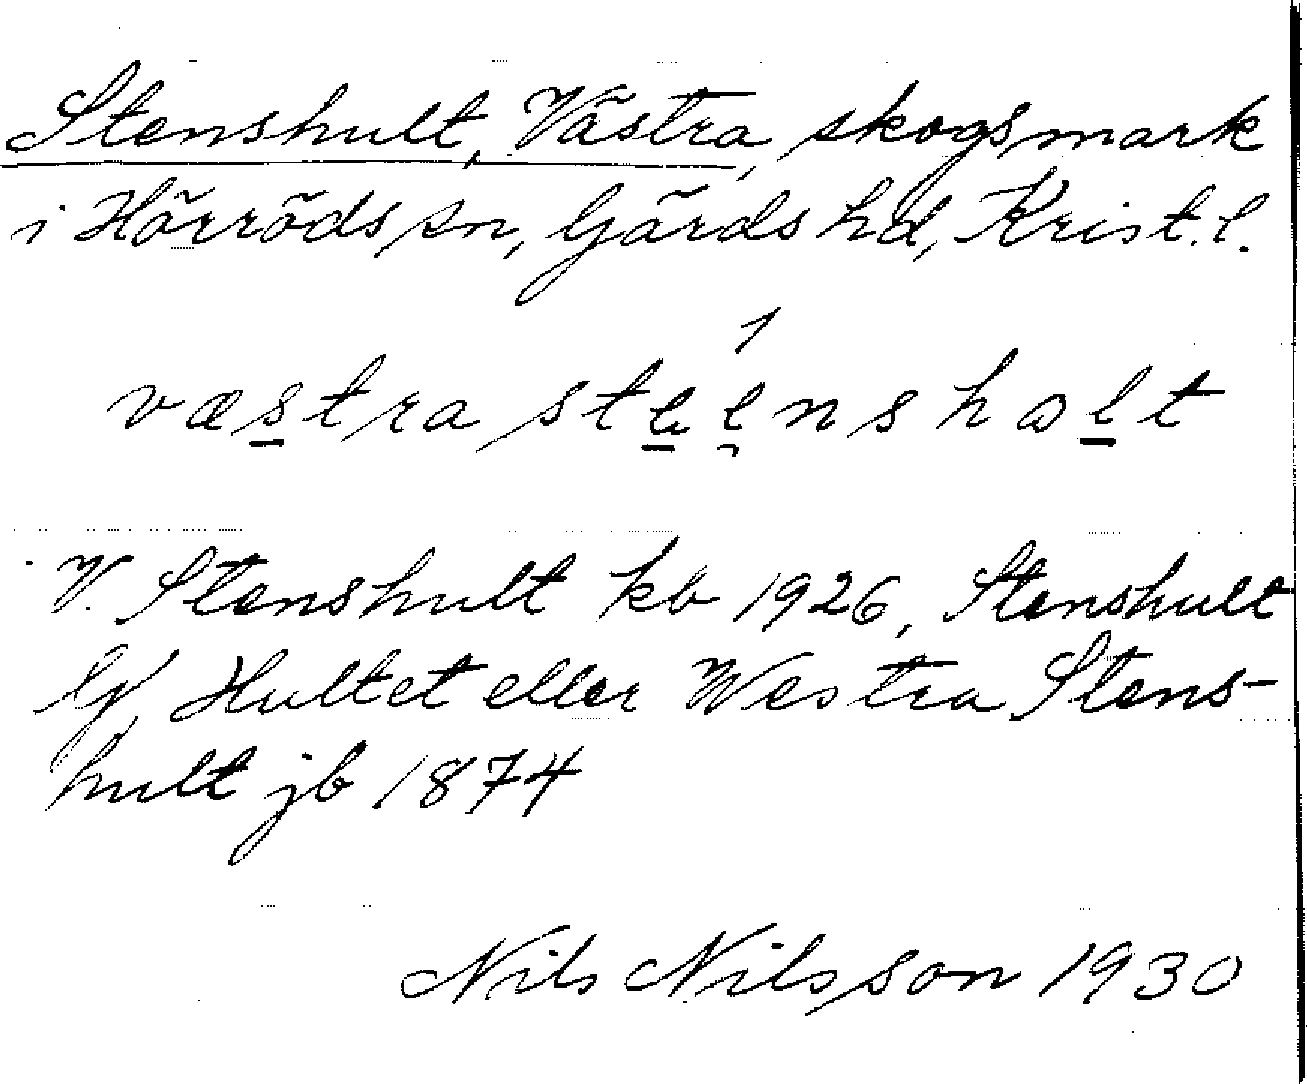 Stenshult, Västra, skogsmark
i Hörröds sn, Gärds hd, Krist. l.
væstra steensholt
V. Stenshult kb 1926, Stenshult
G, Hultet eller Westra Stens-
hult jb 1874
Nils Nilsson 1930